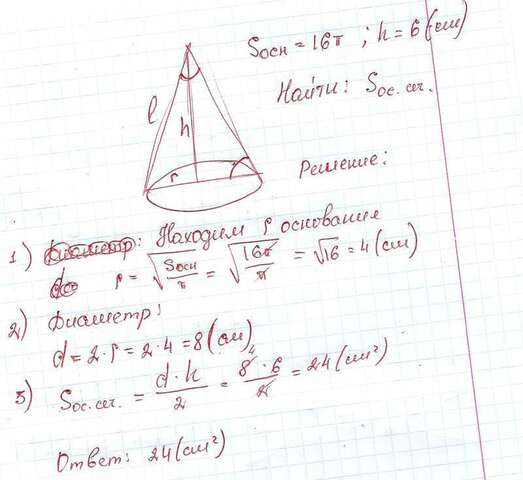 Sосн = 16π ; h = 6 (см)
Найти: Sос. сеч.
Решение:
l
h
r
1) Диаметр: Находим r основания
r = √Sосн/π = √16π/π = √16 = 4 (см)
2) Диаметр:
d = 2·r = 2·4 = 8 (см)
3) Sос. сеч. = d·h/2 = 8·6/2 = 24 (см²)
4
Ответ: 24 (см²)